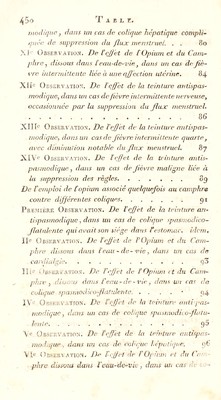 450 TABLE.
modique, dans un cas de colique hépatique compli-
quée de suppression du flux menstruel. . . 80
XIe OBSERVATION. De l'effet de l'Opium et du Cam-
phre, dissous dans l'eau-de-vie, dans un cas de fiè-
vre intermittente liée à une affection utérine. 84
XIIe OBSERVATION. De l'effet de la teinture antipas-
modique, dans un cas de fièvre intermittente nerveuse,
occasionnée par la suppression du flux menstruel.
. . . . . . . . . . 86
XIIIe OBSERVATION. De l'effet de la teinture antis-
pasmodique, dans un cas de fièvre intermittente quarte,
avec diminution notable du flux menstruel. 87
XIVe OBSERVATION. De l'effet de la teinture antis-
pasmodique, dans un cas de fièvre maligne liée à
la suppression des règles. . . . . 89
De l'emploi de l'opium associé quelquefois au camphre
contre différentes coliques. . . . . 91
PREMIÈRE OBSERVATION. De l'effet de la teinture an-
tispasmodique, dans un cas de colique spasmodico-
flatulente qui avait son siège dans l'estomac. idem.
IIe OBSERVATION. De l'effet de l'Opium et du Cam-
phre dissous dans l'eau-de-vie, dans un cas de
cardialgie. . . . . . . 93
IIIe OBSERVATION. De l'effet de l'Opium et du Cam-
phre, dissous dans l'eau-de-vie, dans un cas de
colique spasmodico-flatulente. . . . . 94
IVe OBSERVATION. De l'effet de la teinture antispas-
modique, dans un cas de colique spasmodico-flatu-
lente. . . . . . . . 95
Ve OBSERVATION. De l'effet de la teinture antispas-
modique, dans un cas de colique hépatique. 96
VIe OBSERVATION. De l'effet de l'Opium et du Cam-
phre dissous dans l'eau-de-vie, dans un cas de